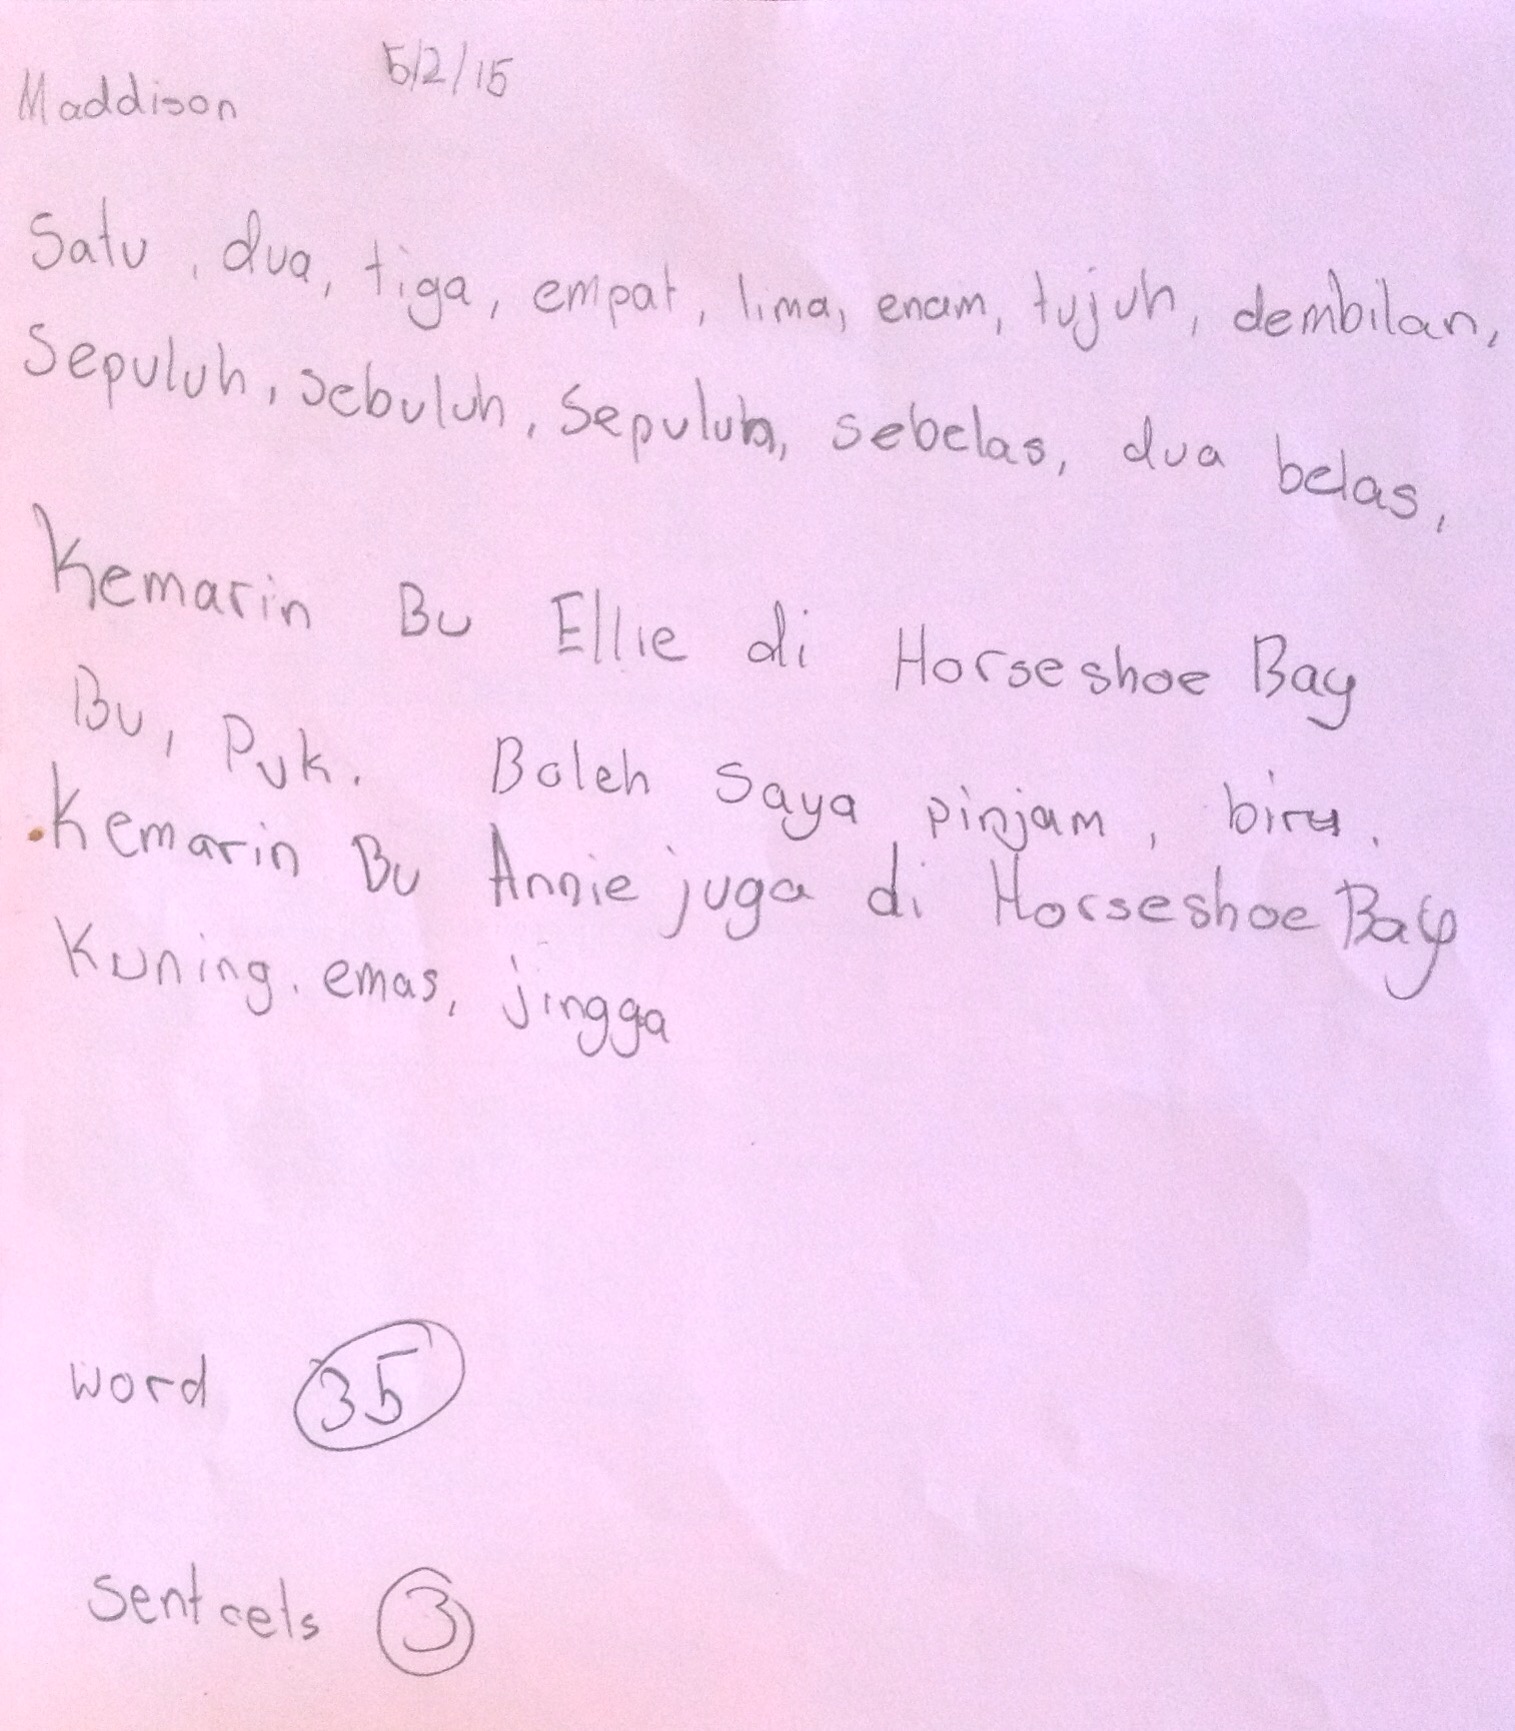 Maddison 5/2/15
Satu, dua, tiga, empat, lima, enam, tujuh, dembilan,
Sepuluh, sebuluh, Sepuluh, sebelas, dua belas,
Kemarin Bu Ellie di Horseshoe Bay
Bu, Puk. Boleh saya pinjam, biru.
Kemarin Bu Annie juga di Horseshoe Bay
Kuning, emas, jingga
word 35
sentcels 3